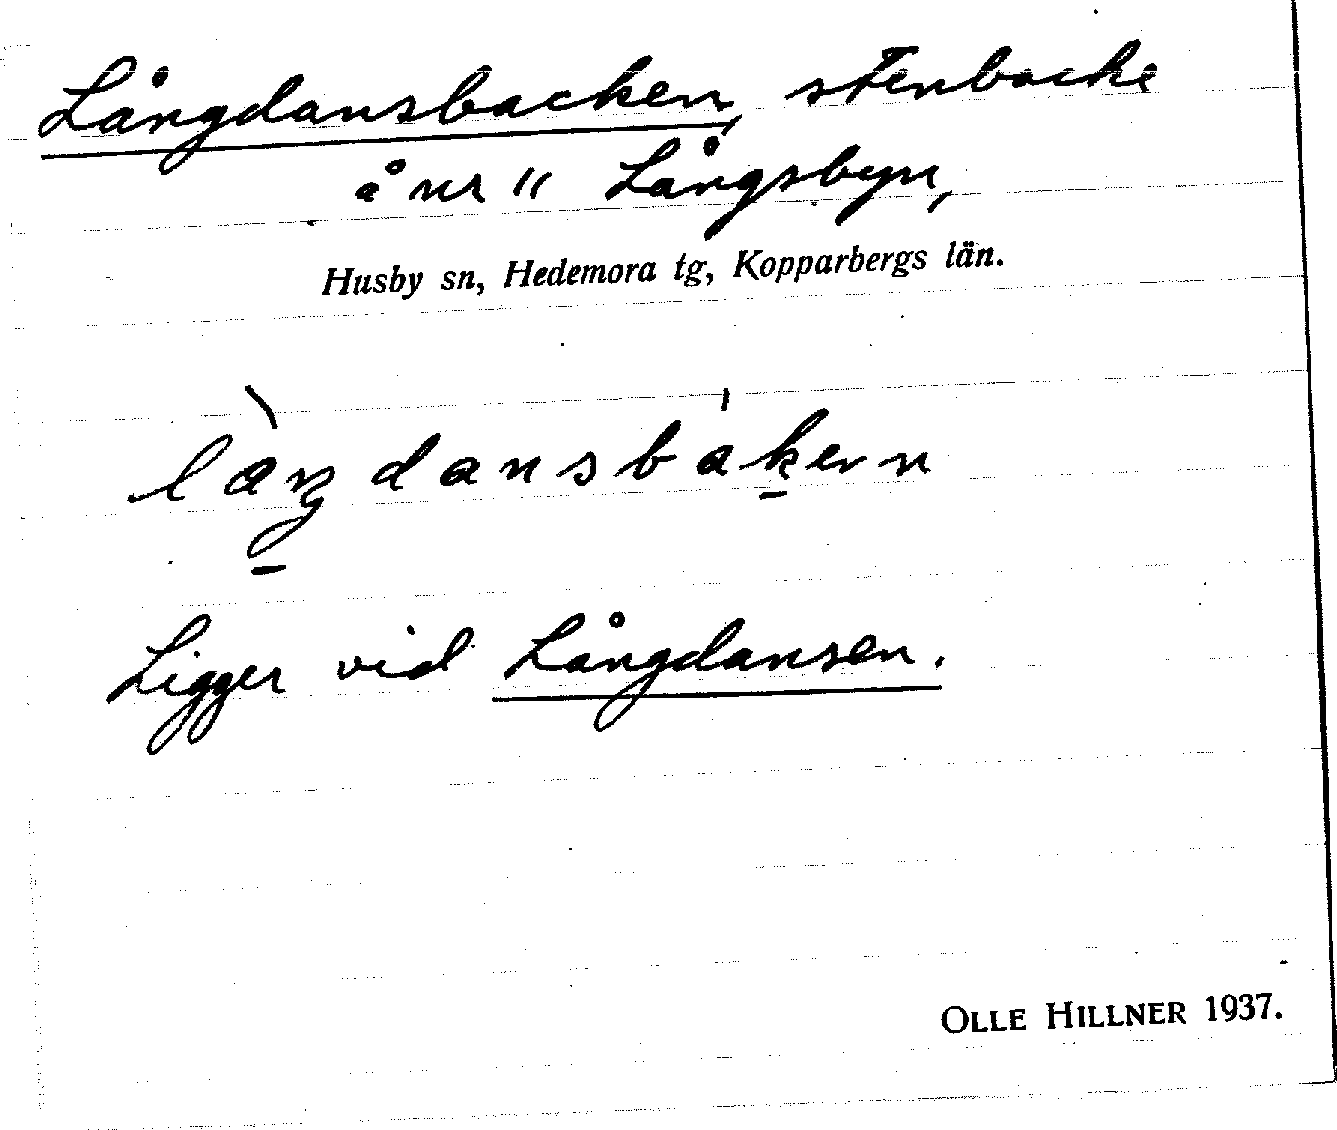 Långdansbacken, stenbacke
å nr 11 Långsbyn,
Husby sn, Hedemora tg, Kopparbergs län.
làŋdansbákenn
Ligger vid Långdansen.
OLLE HILLNER 1937.